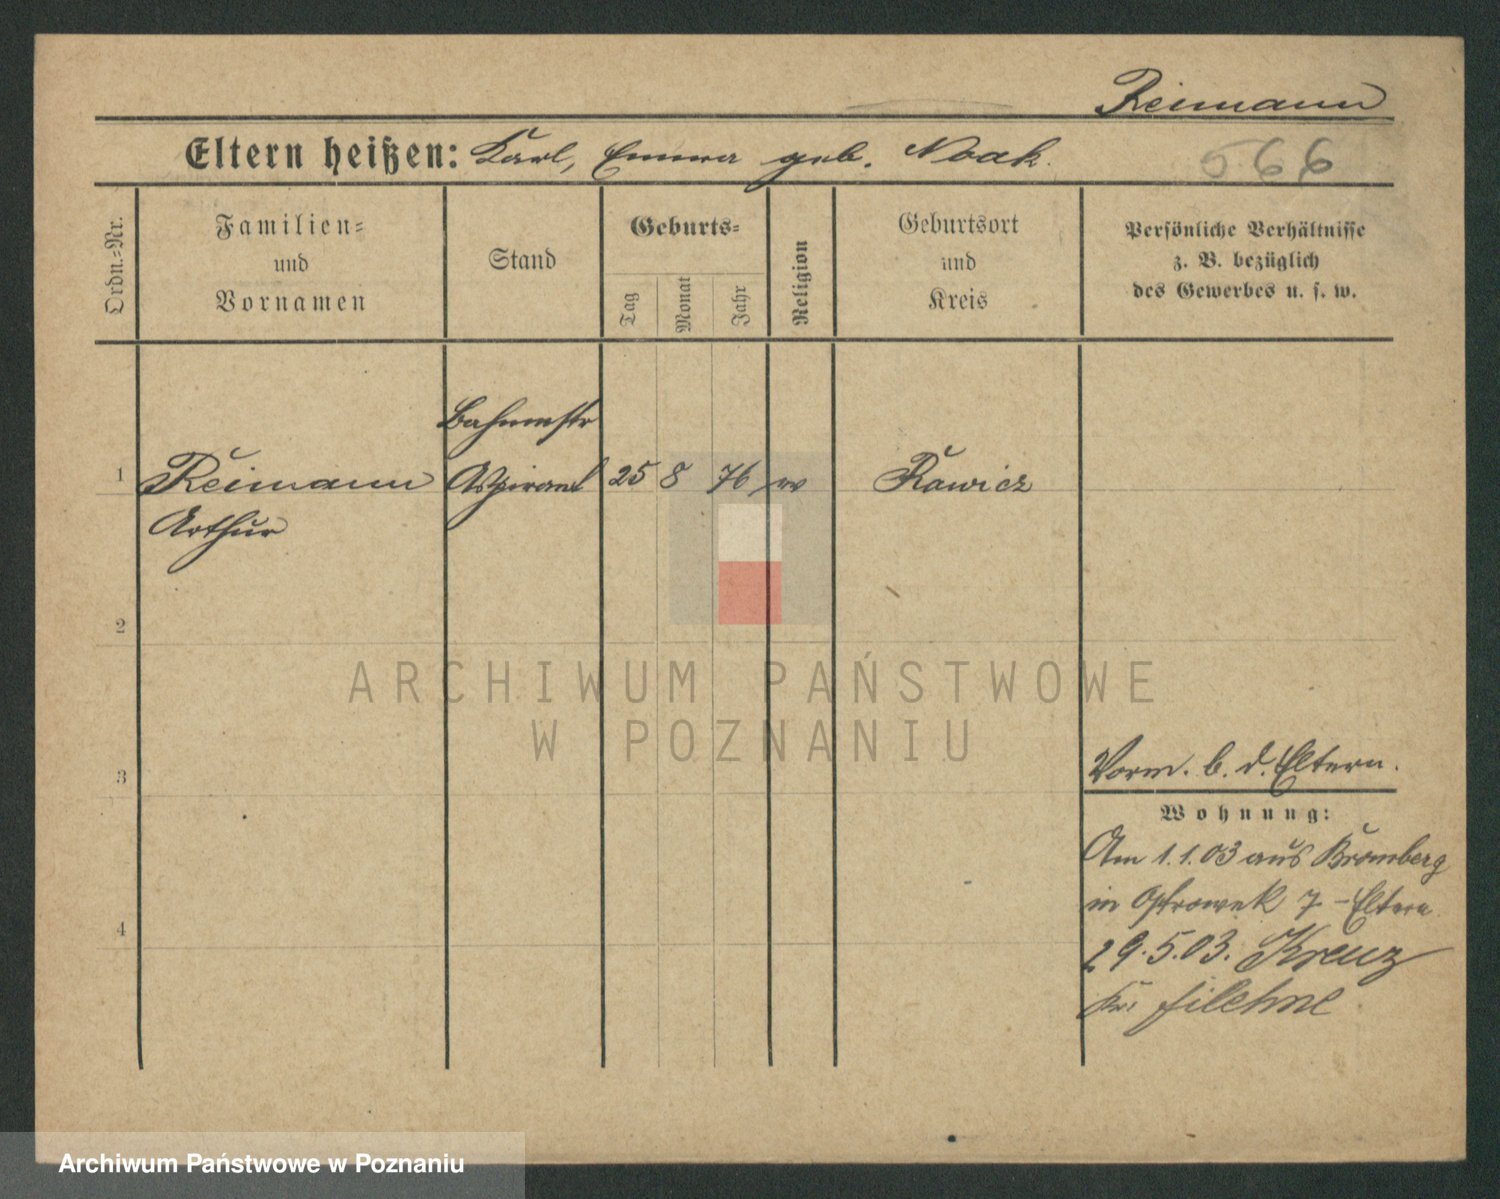 Reimann
Eltern heißen: Karl, Emma geb. Noak.
566
Ordn.-Nr.
Familien-
und
Vornamen
Stand
Geburts-
Tag
Monat
Jahr
Religion
Geburtsort
und
Kreis
Persönliche Verhältnisse
z. B. bezüglich
des Gewerbes u. s. w.
Bahnmstr
1 Reimann Aspirant 25 8 76 ev Rawicz
Arthur
2
ARCHIWUM PAŃSTWOWE
W POZNANIU
3
Vorm. b. d. Eltern.
Wohnung:
Am 1.1.03 aus Bromberg
in Ostrowek 7 - Eltern
4
29.5.03. Kreuz
Kr. Filehne
Archiwum Państwowe w Poznaniu